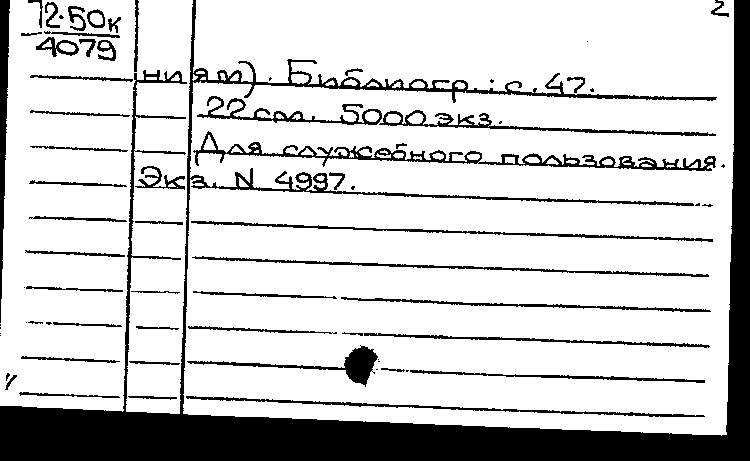 72-50к
2
4079
ниям). Библиогр.: с. 47.
22 см. 5000 экз.
Для служебного пользования.
Экз. N 4997.